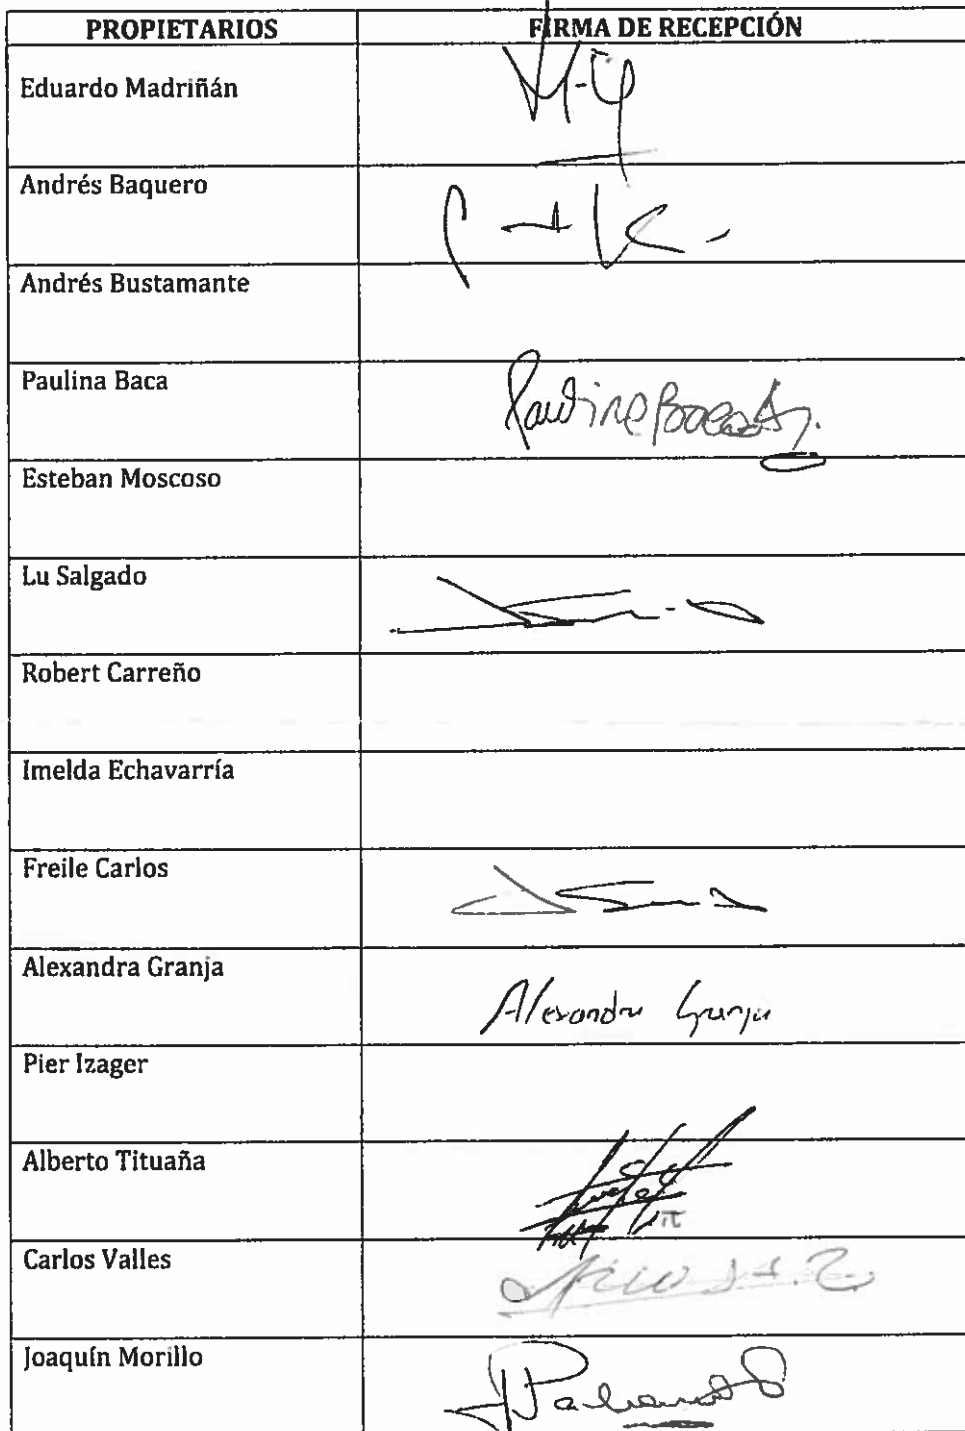 PROPIETARIOS FIRMA DE RECEPCIÓN
Eduardo Madriñán
Andrés Baquero
Andrés Bustamante
Paulina Baca Paulina Baca
Esteban Moscoso
Lu Salgado
Robert Carreño
Imelda Echavarría
Freile Carlos
Alexandra Granja Alexandra Granja
Pier Izager
Alberto Tituaña
Carlos Valles
Joaquín Morillo